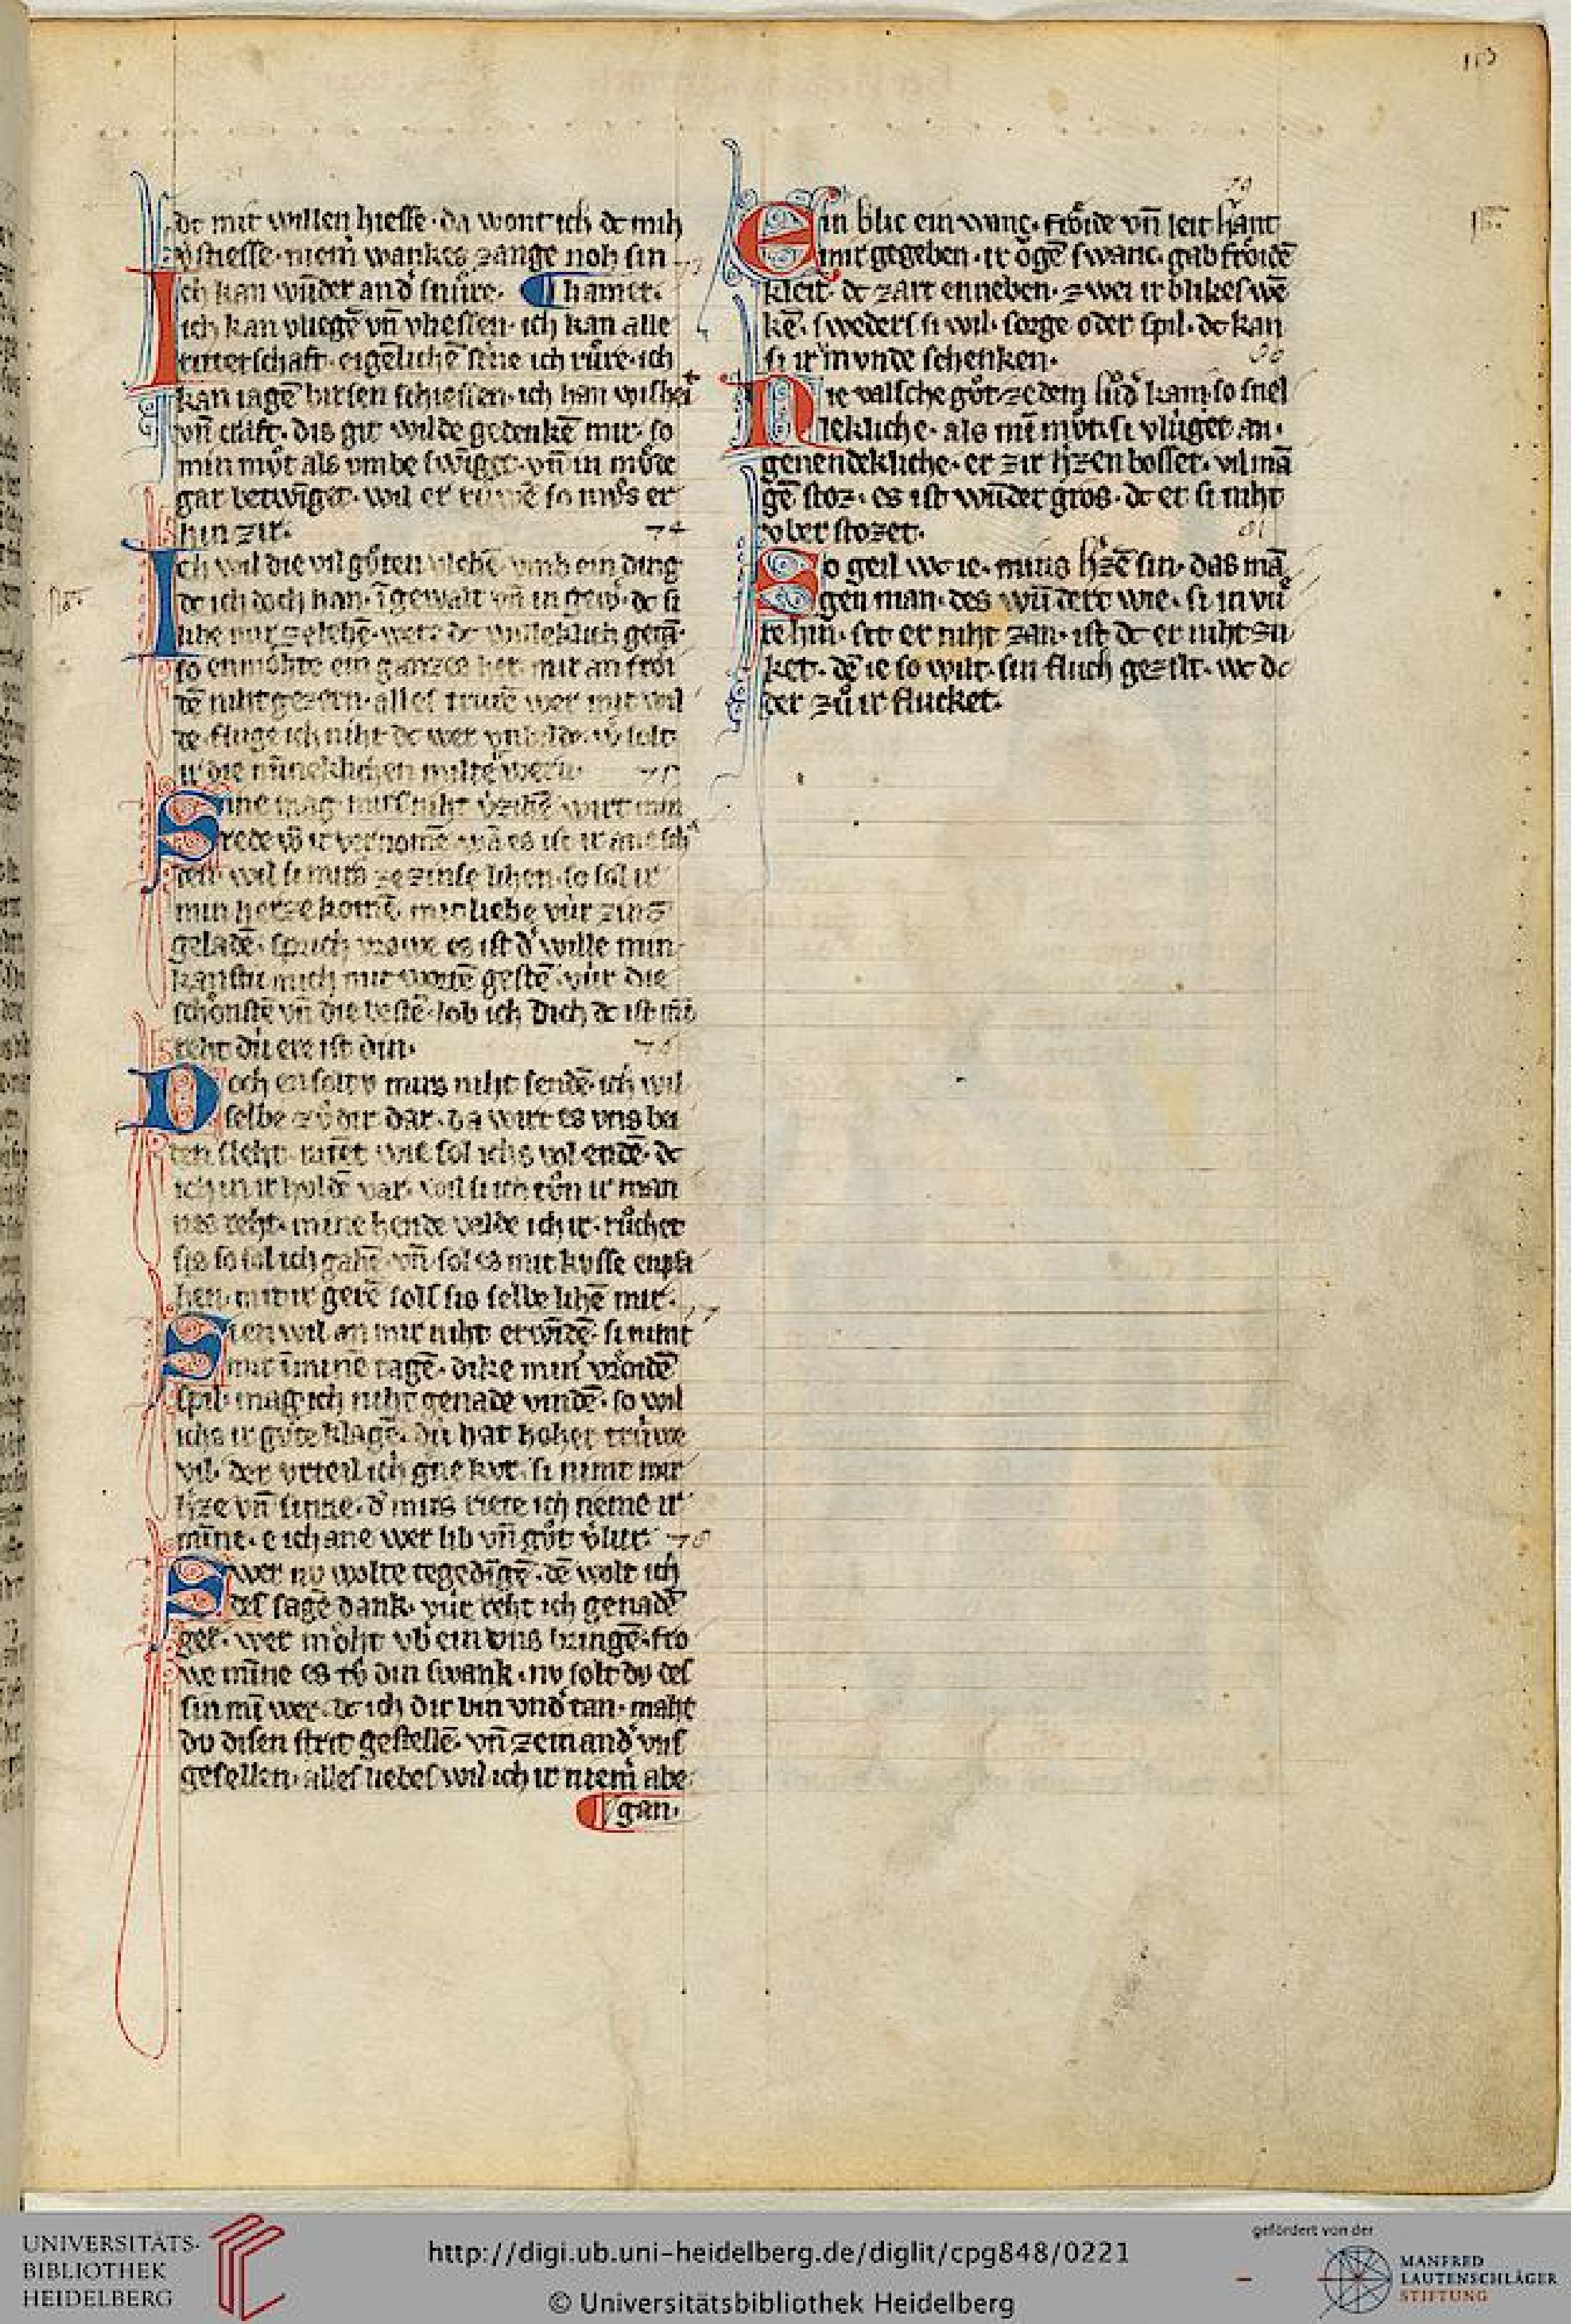 113
dc mit willen hiesse · da wont ich dc mih
v̾stiesse · niem̾ wankes zange noh sin
Ich kan wūder and̾ snůre · hamer ·
ich kan vliegē vn̄ vliessen · ich kan alle
ritterschaft · eigēlichē sēne ich růre · ich
kan iagē birsen schiessen · ich han wishei
vn̄ craft · dis git wilde gedenkē mir · so
min můt als vmbe swīget · vn̄ in můde
gar betwīget · wil er růwē so můs er
hin zir · 74
Ich wil die vil gůten vlehē vmb ein ding
dc ich doch han · ī gewalt vn̄ in gew̾ · dc si
lihe mir zelehē · were dc willeklich getā ·
so enmöhte ein ganzes her · mir an fröi
dē niht gezern · alles trurē wer mir wil
de · fluge ich niht dc wer vnbilde · v̾ solt
ir die mīneklichen milte wern · 75
Sinne mag mirs niht v̾zihē wirt min
rede vō ir vernomē · wā es ist ir ane sch
den · wil si mirs ze zinse lihen · so sol ir
min herze komē · mit liebe vür zins
geladē · sprich vrowe es ist d̾ wille min ·
kanstu mich mit wortē gestē · vür die
schönstē vn̄ die bestē · lob ich dich dc ist mī
reht dü ere ist din · 76
Doch en soltv mirs niht sendē · ich wil
selbe zů dir dar · da wirt es vns bei
den sleht · mīet wie sol ichs vol endē · dc
ich in ir huldē var · wil si ich tůn ir man
nes reht · mine hende valde ich ir · růchet
sis so sol ich gahē · vn̄ sol es mit kusse enpfa
hen · mit ir gerē soll sis selbe lihē mir · 77
Si en wil an mir niht erwīdē · si nimt
mir ī minē tagē · dike min̾ vröidē
spil · mag ich niht genade vindē · so wil
ichs ir gůte klagē · dü hat hoher trüwe
vil · der vrteil ich gne kvr · si nimt mir
h̾ze vn̄ sinne · d̾ mirs riete ich neme ir
mīne · e ich ane wer lib vn̄ gůt v̾lür · 78
Swer nv wolte tegedīgē · dē wolt ich
des sagē dank · vür reht ich genadē
ger · wer möht vb̾ ein vns bringē · fro
we mīne es tů din swank · nv solt dv des
sin mī wer · dc ich dir bin vnd̾tan · maht
dv disen strit gestellē · vn̄ zeinand̾ vns
gesellen · alles liebes wil ich ir niem̾ abe
gan ·
79
Ein blic ein wanc · fröide vn̄ leit hant
mir gegeben · ir ögē swanc · gab fröidē
kleit · dc zart enneben · zwei ir blikes wē
kē · sweders si wil · sorge oder spil · dc kan
si ir̾ mvnde schenken · 80
Nie valsche gůt · ze dem lůd̾ kam · so snel
lekliche · als mī můt · si vlüget an ·
genendekliche · er zir h̾zen bosset · vil mā
gē stoz · es ist wūder gros · dc er si niht
vber stozet · 81
So geil wc ie · mins h̾zē sin · das mā
gen man · des wūdert wie · si in vů
re hin · sit er niht zan · ist dc er niht zu
ket · dē ie so wilt · sin fluch gezilt · wc dc
der zů ir flucket ·
UNIVERSITÄTS-
BIBLIOTHEK
HEIDELBERG
http://digi.ub.uni-heidelberg.de/diglit/cpg848/0221
© Universitätsbibliothek Heidelberg
gefördert von der
MANFRED
LAUTENSCHLÄGER
STIFTUNG